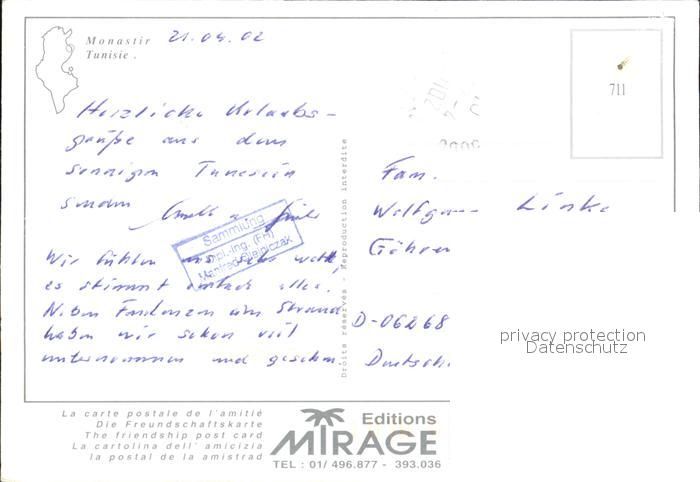 Monastir 21.04.02
Tunisie.
711
Herzliche Urlaubs-
grüße aus dem
sonnigen Tunesien
senden
Wir fühlen uns sehr wohl,
es stimmt einfach alles.
Neben Faulenzen am Strand
haben wir schon viel
unternommen und gesehen
Sammlung
Dipl.-Ing. (FH)
Manfred
Fam.
Wolfgang Linke
Göhren
D-06268
Deutschl
Droits réservés - Reproduction interdite
privacy protection
Datenschutz
La carte postale de l'amitié
Die Freundschaftskarte
The friendship post card
La cartolina dell' amicizia
la postal de la amistrad
Editions
MIRAGE
TEL : 01/ 496.877 - 393.036